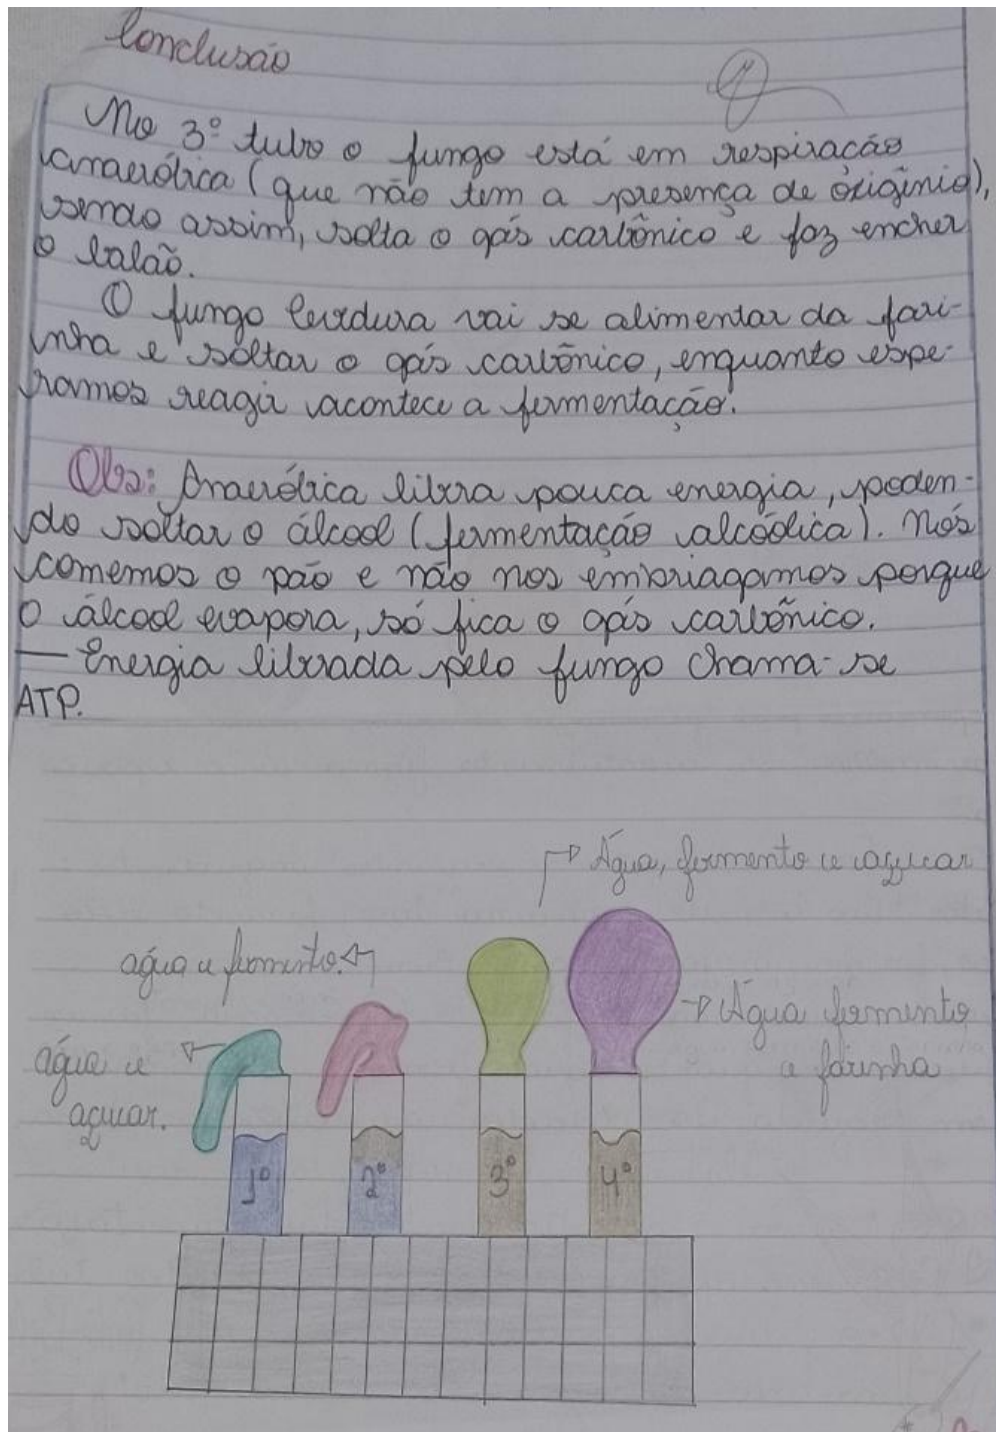 Conclusão
No 3º tubo o fungo está em respiração
anaeróbica (que não tem a presença de óxigênio),
sendo assim, solta o gás carbônico e faz encher
o balão.
O fungo levedura vai se alimentar da fari-
nha e soltar o gás carbônico, enquanto espe-
ramos reagir acontece a fermentação.
Obs: Anaeróbica libera pouca energia, poden-
do soltar o álcool (fermentação alcoólica). Nós
comemos o pão e não nos embriagamos porque
o álcool evapora, só fica o gás carbônico.
— Energia liberada pelo fungo chama-se
ATP.
Água, fermento e açucar
água e fermento.
Água fermento
e farinha
água e
açucar.
1º 2º 3º 4º